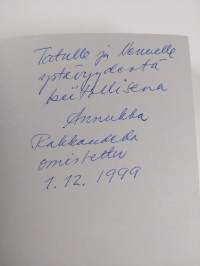 Tatulle ja Nennelle
ystävyydestä
kiitollisena
Annukka
Rakkaudella
omistettu
1.12. 1999